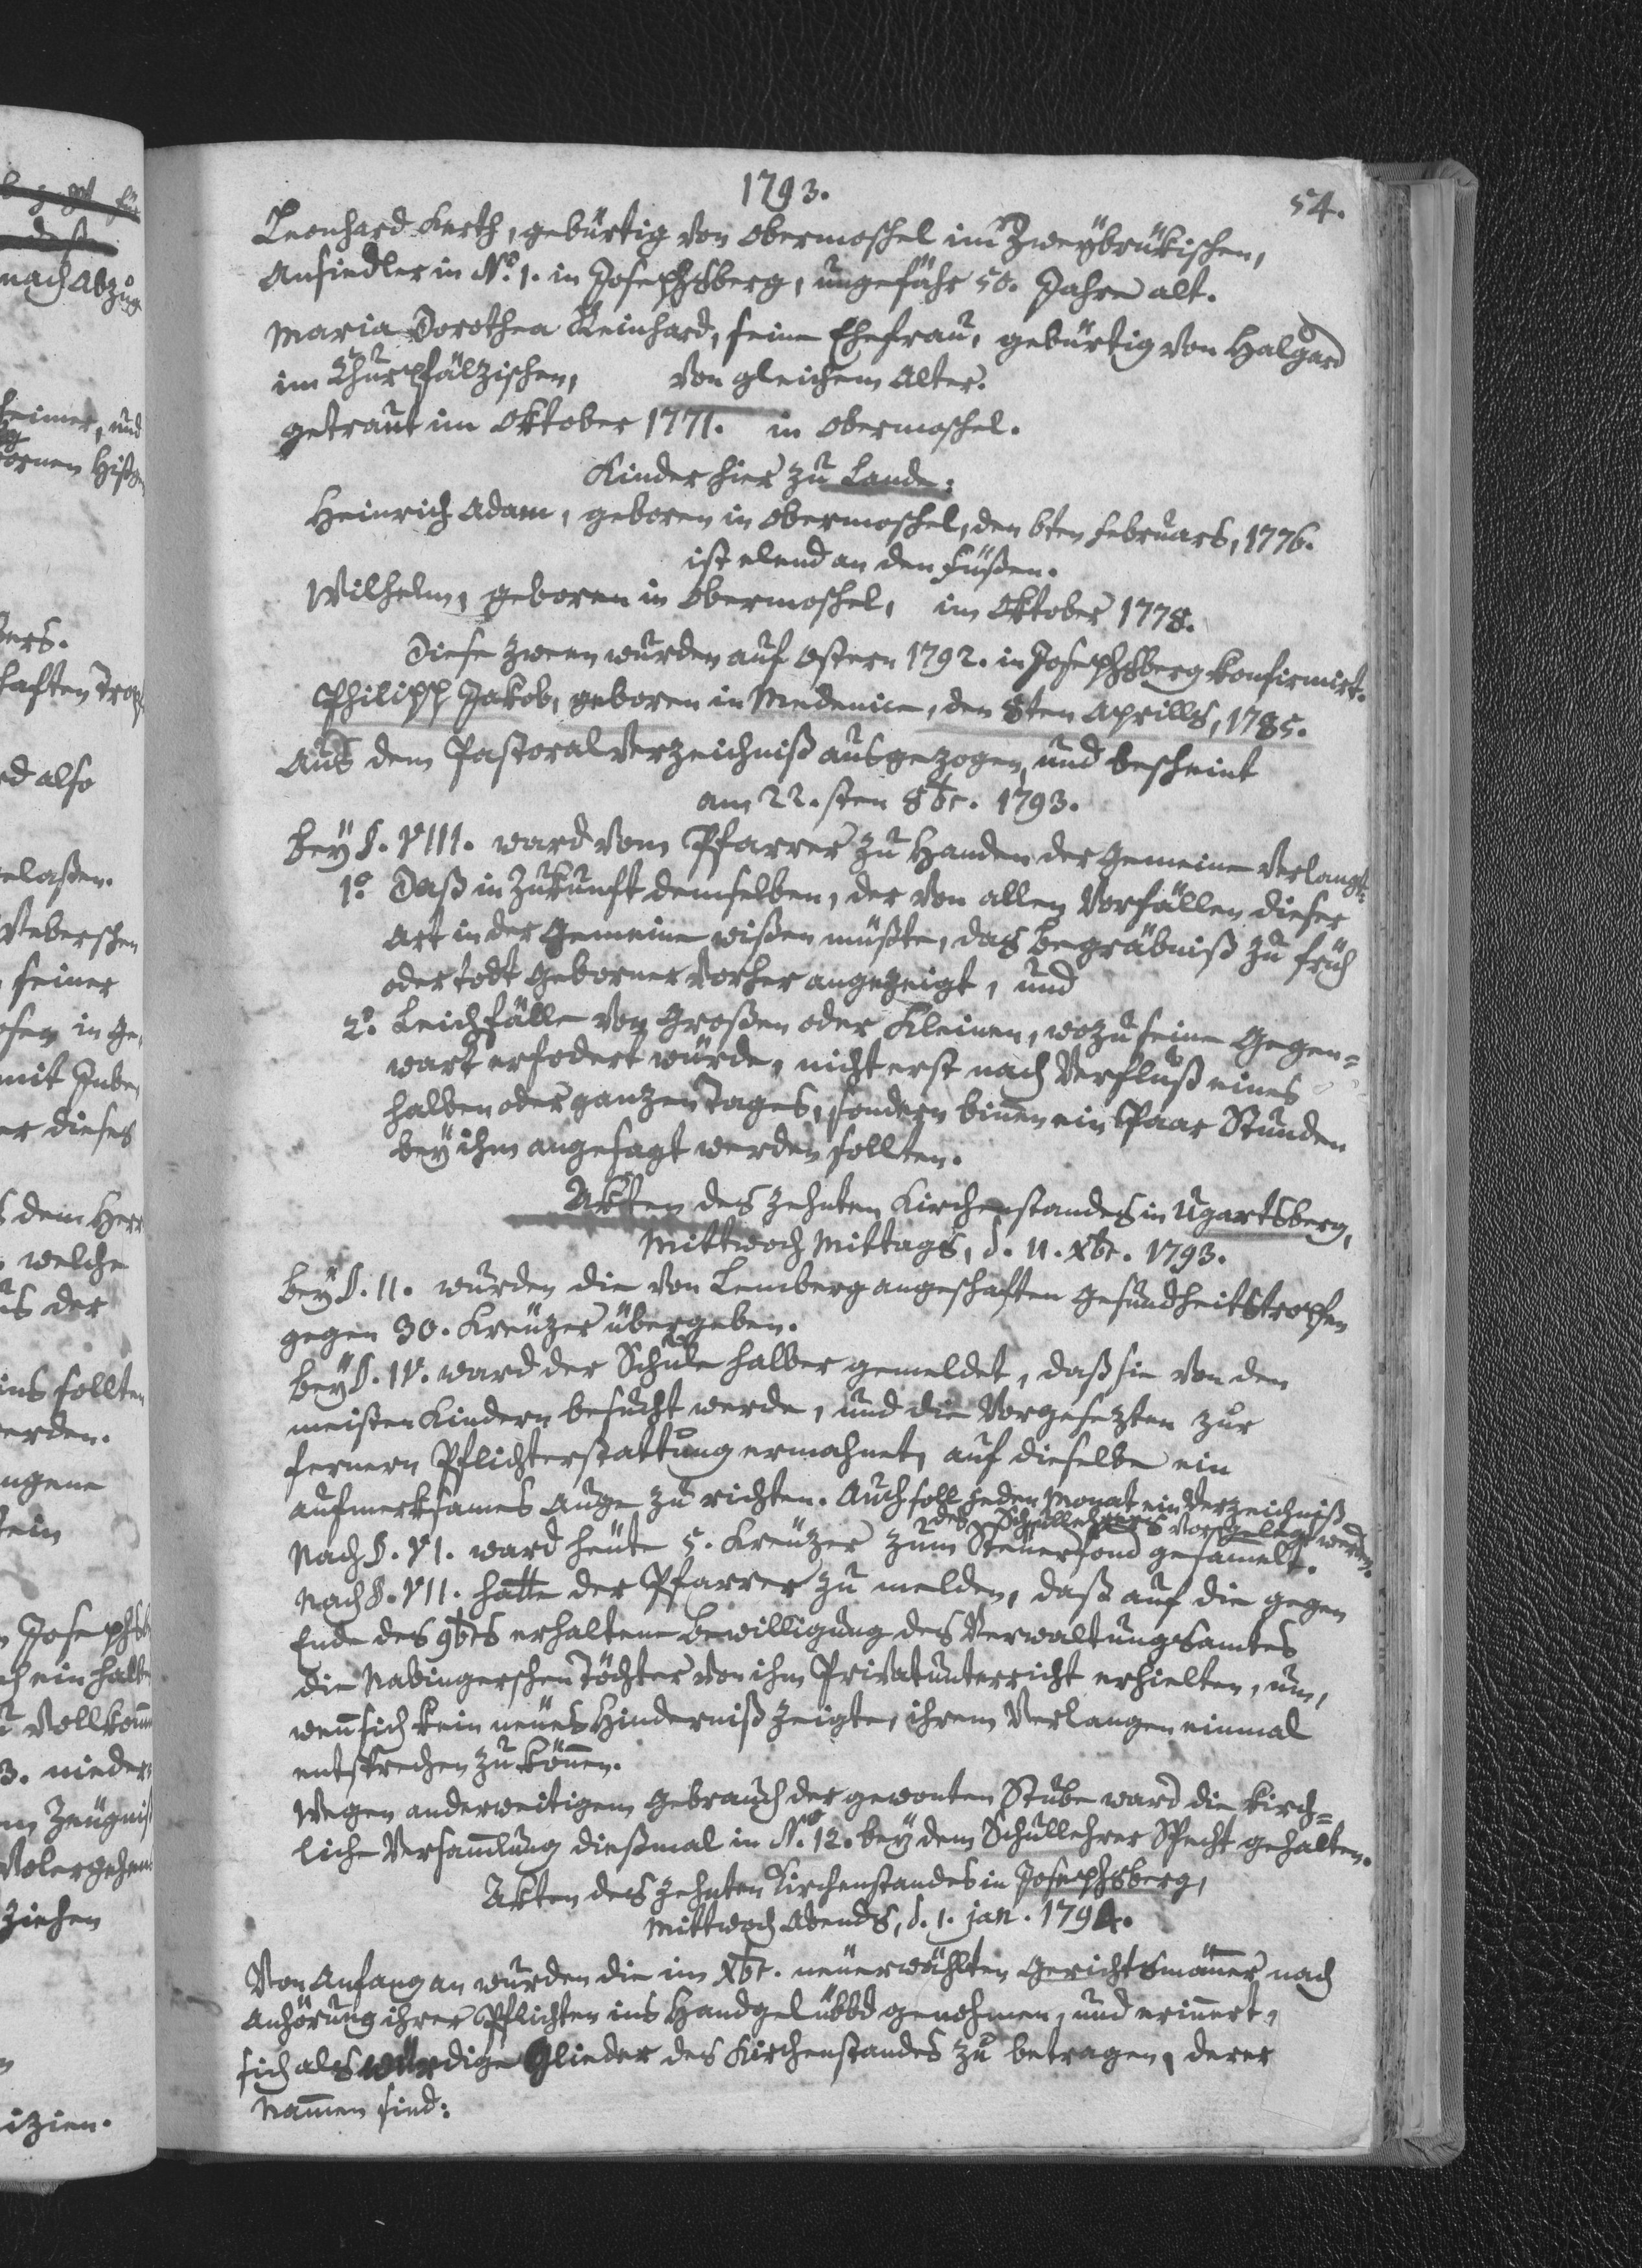 1793.
54.
Leonhard Kerth, gebürtig von Obermoschel im Zweÿbrükischen,
Ansiedler in No. 1. in Josephsberg, ungefähr 50. Jahre alt.
Maria Dorothea Reinhard, seine Ehefrau, gebürtig von Halgard
im Churpfälzischen, von gleichem Alter.
getraut im Oktober 1771. in Obermoschel.
Kinder hier zu Lande:
Heinrich Adam, geboren in Obermoschel, den 6ten Februars, 1776.
ist elend an den Füßen.
Wilhelm, geboren in Obermoschel, im Oktober 1778.
Diese zween wurden auf Ostern 1792. in Josephsberg konfirmirt.
Philipp Jakob, geboren in Medenice, den 8ten Aprills, 1785.
Aus dem Pastoralverzeichniß ausgezogen, und bescheint
am 22.sten 8br. 1793.
Beÿ §. VIII. ward vom Pfarrer zu Handen der Gemeine verlangt:
1o. Daß in Zukunft demselben, der von allen Vorfällen dieser
Art in der Gemeine wißen müßte, das Begräbniß zu früh
oder todt Geborner vorher angezeigt, und
2o. Leichfälle von Großen oder Kleinen, wozu seine Gegen=
wart erfodert würde, nicht erst nach Verfluß eines
halben oder ganzen Tages, sondern biñen ein Paar Stunden
beÿ ihm angesagt werden sollten.
Akten des zehnten Kirchenstandes in Ugartsberg,
Mittwoch Mittags, d. 11. Xbr. 1793.
Beÿ §. II. wurden die von Lemberg angeschaften Gesundheitstropfen
gegen 30. Kreuzer übergeben.
Beÿ §. IV. ward der Schule halber gemeldet, daß sie von den
meisten Kindern besucht werde, und die Vorgesezten zur
fernern Pflichterstattung ermahnet, auf dieselbe ein
aufmerksames Auge zu richten. Auch soll jeden Monat ein Verzeichniß
des Schullehrers vorgelegt werden.
Nach §. VI. ward heute 5. Kreuzer zum Steuerfond gesam̃elt.
Nach §. VII. hatte der Pfarrer zu melden, daß auf die gegen
Ende des 9brs erhaltene Bewilligung des Verwaltungsamtes
die Nabingerschen Töchter von ihm Privatunterricht erhielten, um,
weñ sich kein neues Hinderniß zeigte, ihrem Verlangen einmal
entsprechen zu köñen.
Wegen anderweitigem Gebrauch der gewonten Stube ward die kirch=
liche Versam̃lung dießmal in No. 12. beÿ dem Schullehrer Specht gehalten.
Akten des zehnten Kirchenstandes in Josephsberg,
Mittwoch Abends, d. 1. jan. 1794.
Von Anfang an wurden die im Xbr. neuerwählten Gerichtsmäñer nach
Anhörung ihrer Pflichten ins Handgelübbd genohmen, und erinert,
sich als würdige Glieder des Kirchenstandes zu betragen, derer
Namen sind: